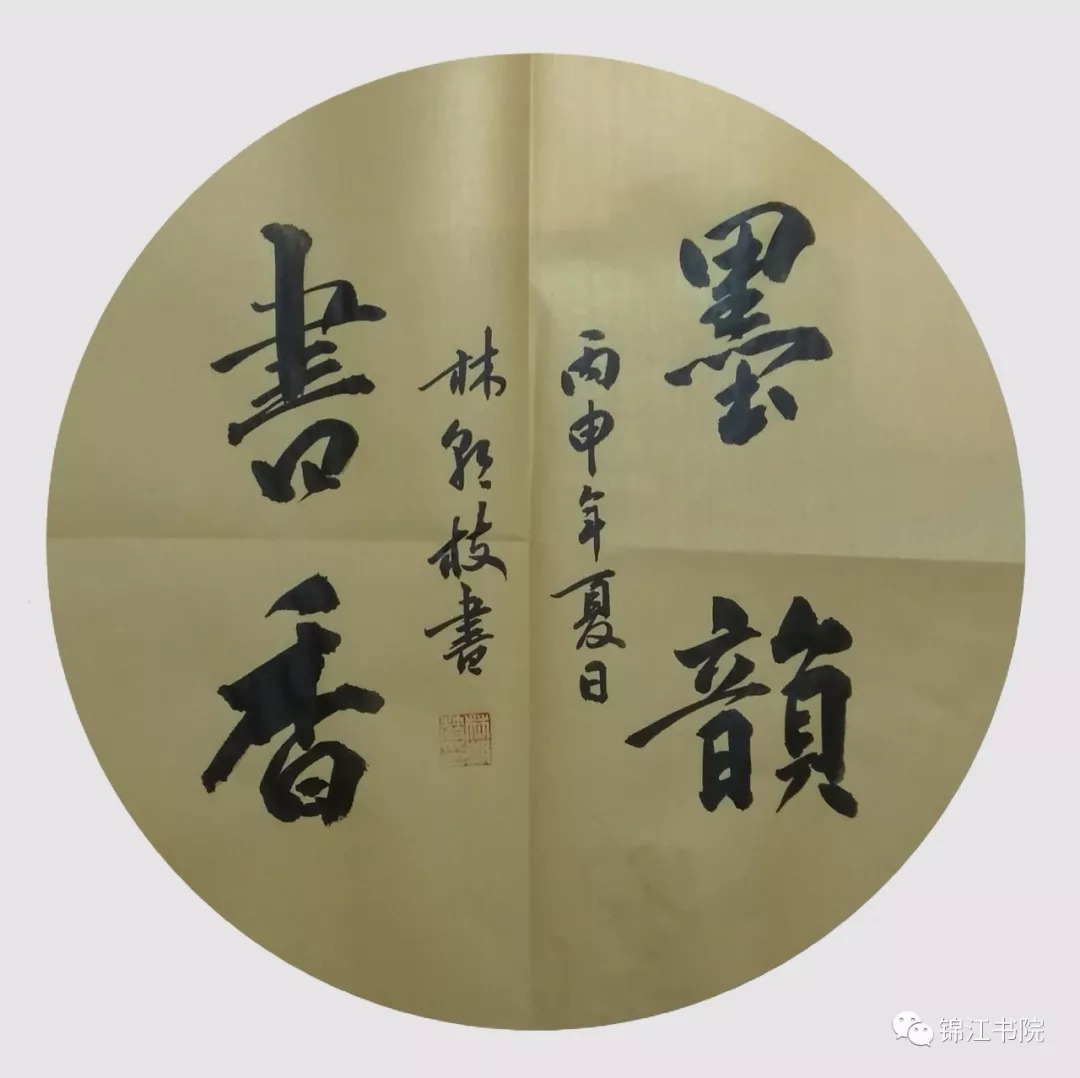 墨韻
丙申年夏日
林 枝書
書香
锦江书院